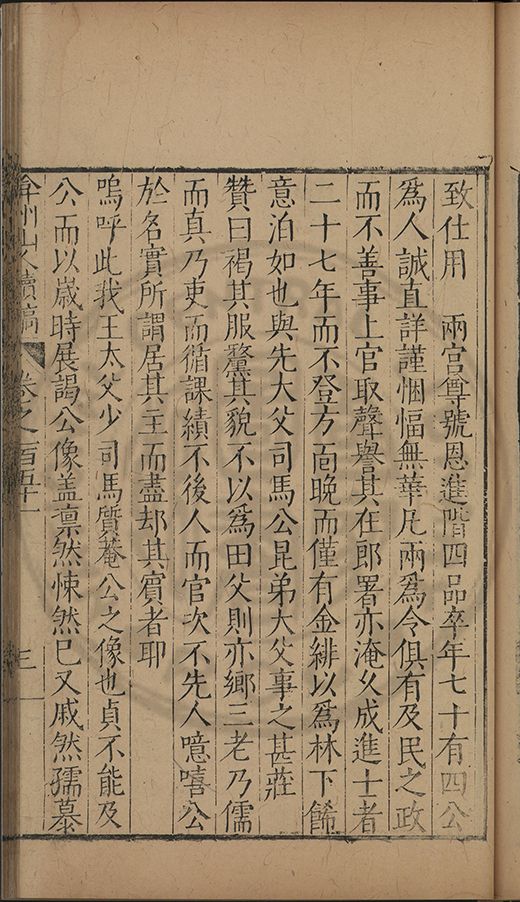 致仕用　兩宮尊號恩進階四品卒年七十有四公
爲人誠直詳謹悃愊無華凡兩爲令俱有及民之政
而不善事上官取聲譽其在郎署亦淹久成進士者
二十七年而不登方面晚而僅有金緋以爲林下餙
意泊如也與先大父司馬公昆弟大父事之甚莊
贊曰褐其服䵣其貌不以爲田父則亦鄉三老乃儒
而真乃吏而循課績不後人而官次不先人噫嘻公
於名實所謂居其主而盡却其賓者耶
嗚呼此我王太父少司馬質菴公之像也貞不能及
公而以歲時展謁公像盖凛然悚然巳又戚然孺慕
弇州山人續稿　卷之一百五十一　三